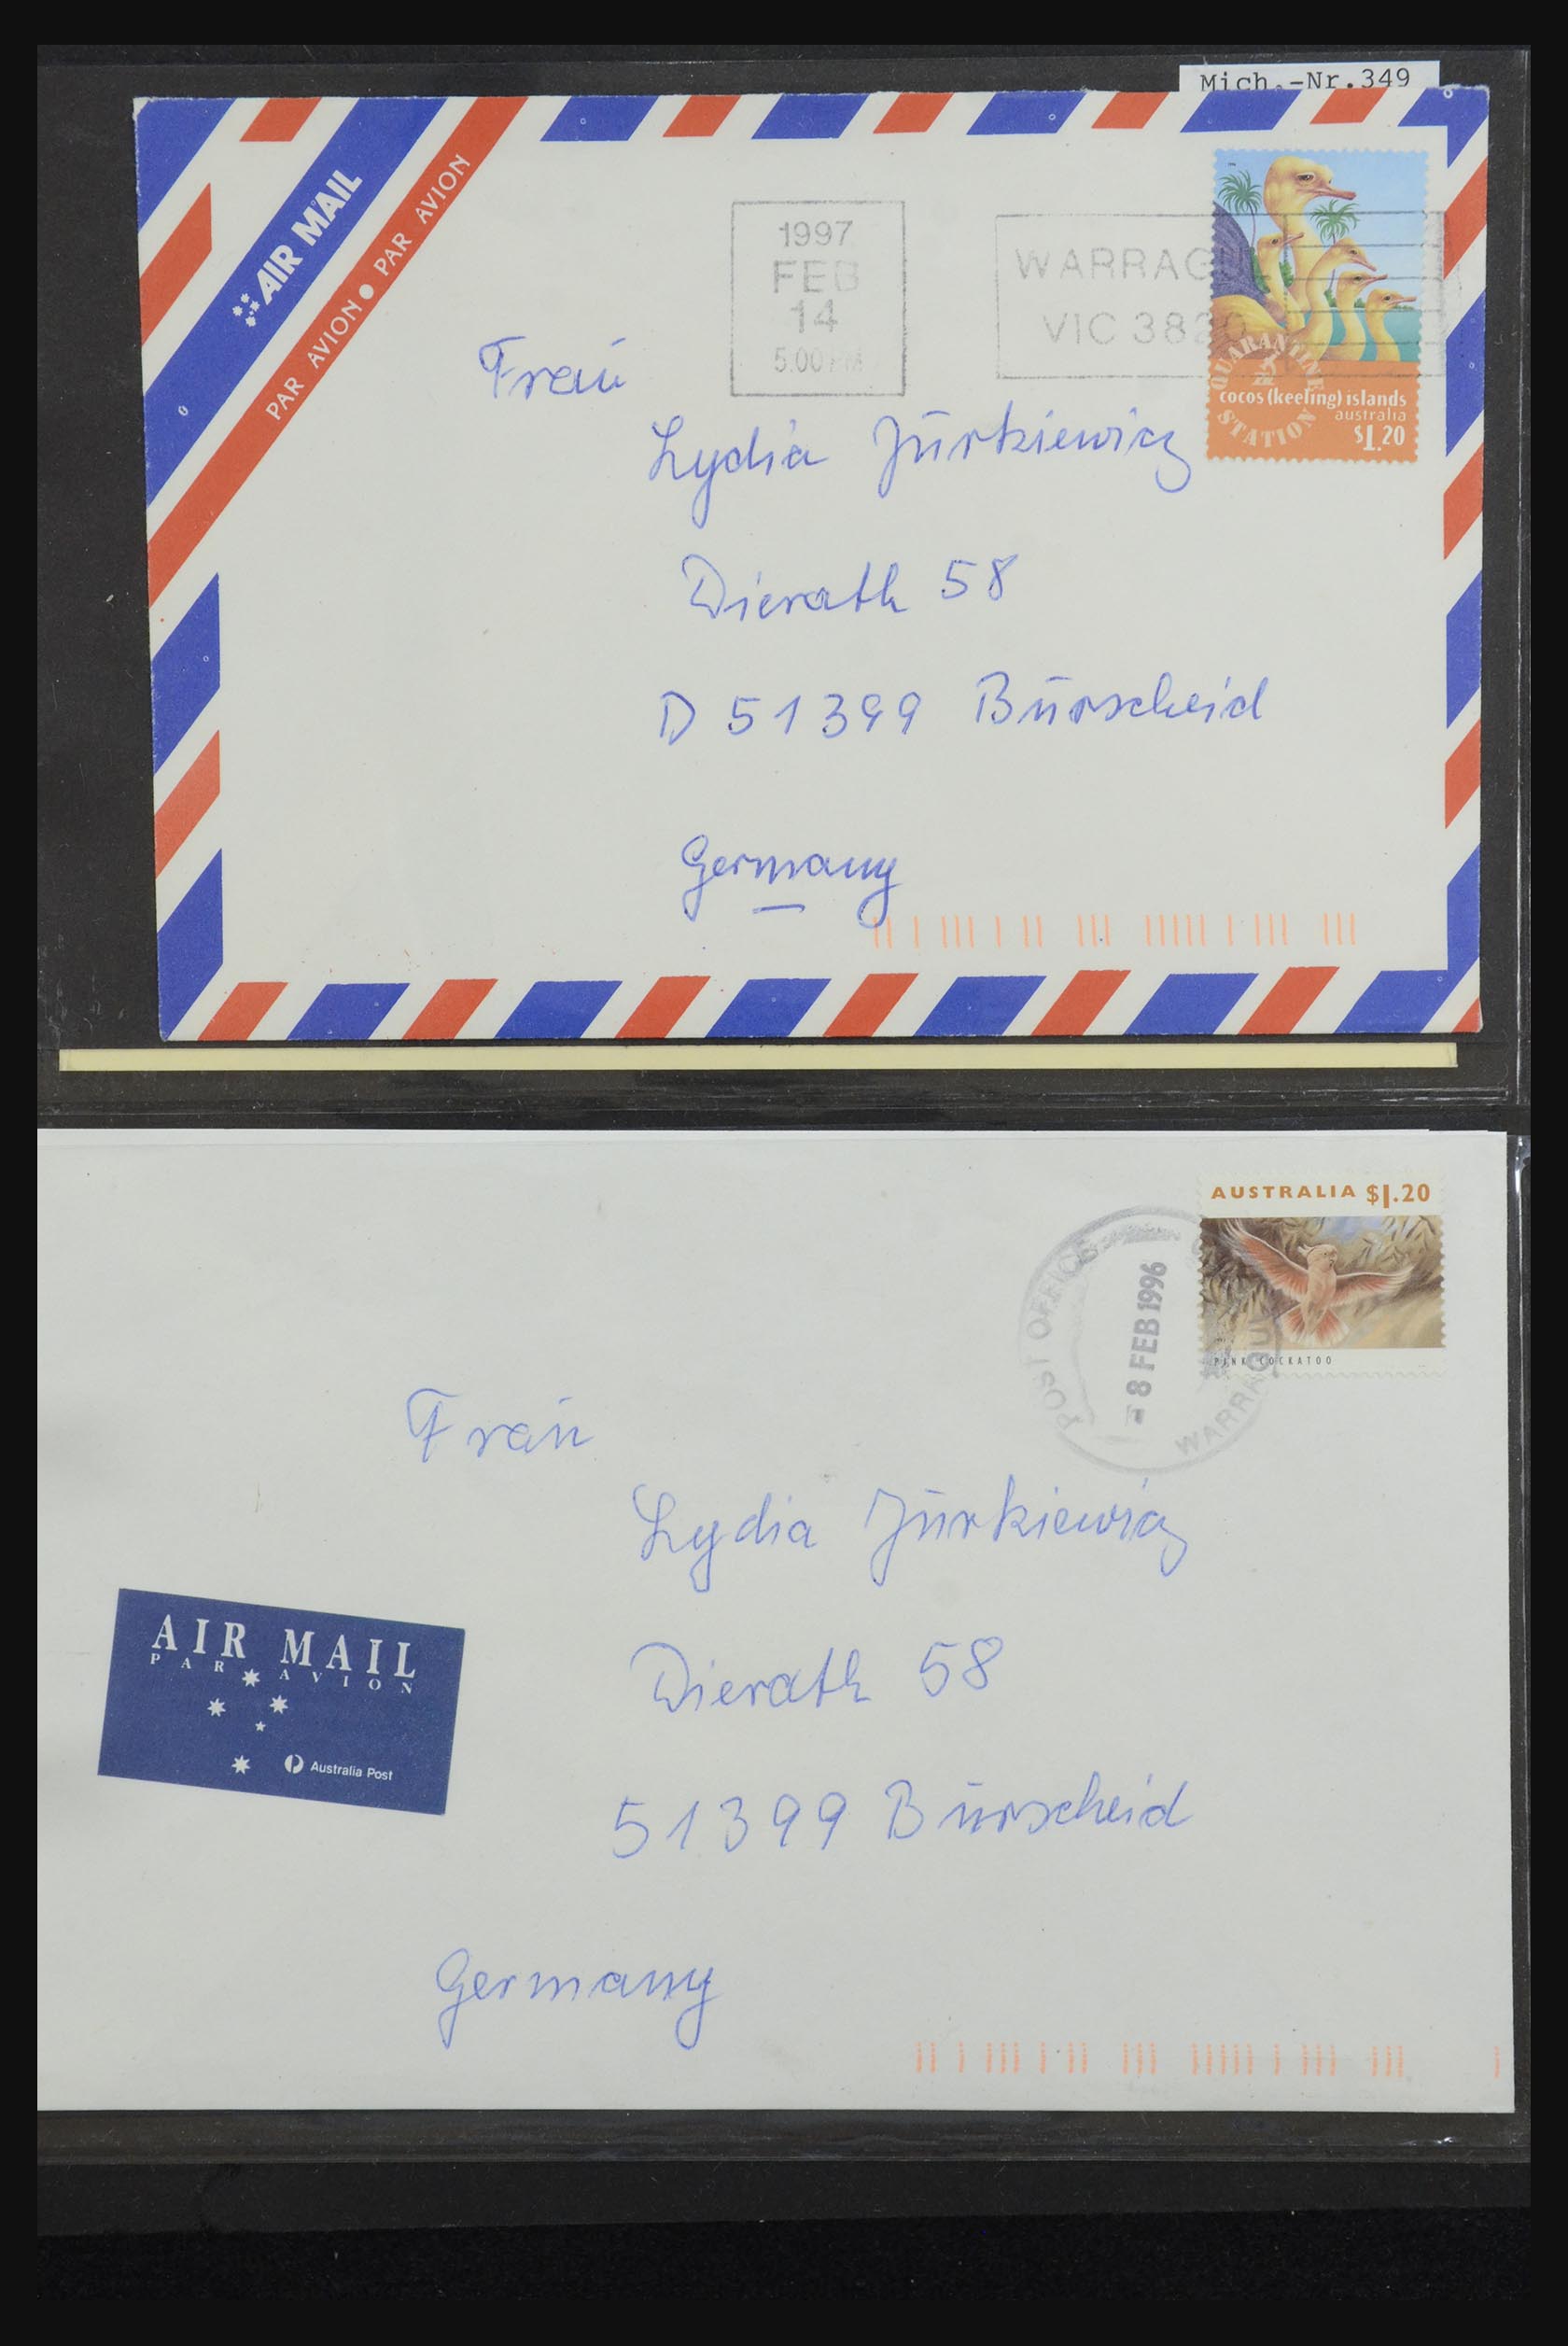 Mich.-Nr.349
AIR MAIL
PAR AVION ● PAR AVION
1997
FEB
14
5.00 PM
WARRAGUL
VIC 3820
QUARANTINE
STATION
cocos (keeling) islands
australia
$1.20
Frau
Lydia Jurkiewicz
Dierath 58
D 51399 Burscheid
Germany
AUSTRALIA $1.20
PINK COCKATOO
POST OFFICE
- 8 FEB 1996
WARRAGUL
Frau
Lydia Jurkiewicz
Dierath 58
51399 Burscheid
Germany
AIR MAIL
PAR AVION
Australia Post